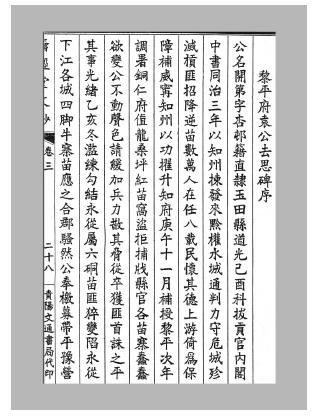 黎平府袁公去思碑序
公名開第字杏邨籍直隸玉田縣道光己酉科拔貢官內閣
中書同治三年以知州揀發來黔權水城通判力守危城珍
減積匪招降逆苗數萬人在任八載民懷其德上游倚為保
障補威甯知州以功擢升知府庚午十一月補授黎平次年
調署銅仁府值龍桑坪紅苗窩盜拒捕戕縣官各苗寨蠢蠢
欲變公不動聲色請緩加兵力散其脅從卒獲匪首誅之平
其事光緒乙亥冬濫練勾結永從屬六硐苗匪猝變陷永從
下江各城四脚牛寨苗應之合郡騷然公奉檄募帶平豫營
卷三
二十八
貴陽文通書局代印